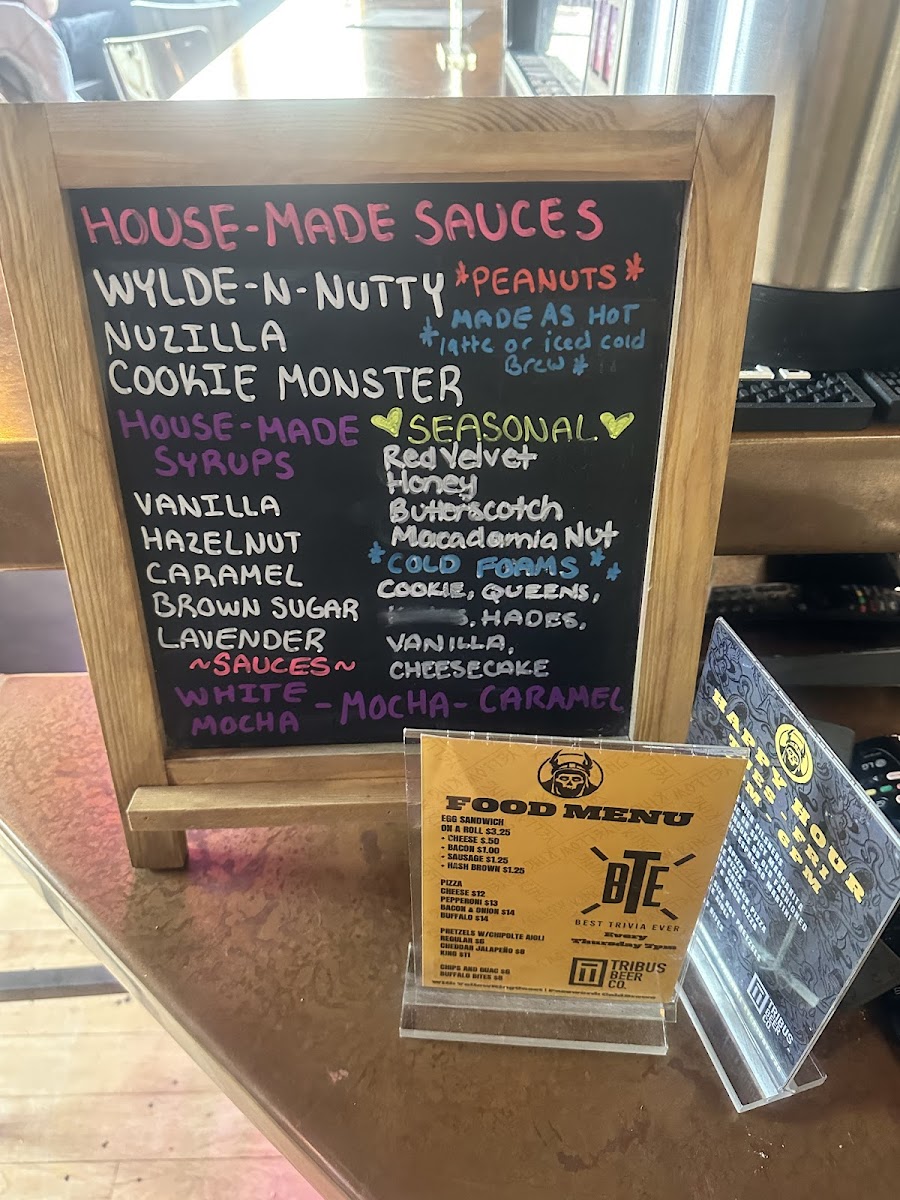 HOUSE-MADE SAUCES
WYLDE-N-NUTTY *PEANUTS*
NUZILLA
COOKIE MONSTER
* MADE AS HOT
latte or iced cold
Brew *
HOUSE-MADE
SYRUPS
VANILLA
HAZELNUT
CARAMEL
BROWN SUGAR
LAVENDER
SEASONAL
Red Velvet
Honey
Butterscotch
Macadamia Nut
*COLD FOAMS**
COOKIE, QUEENS,
, HADES,
VANILLA,
CHEESECAKE
~SAUCES~
WHITE
MOCHA -MOCHA- CARAMEL
FOOD MENU
EGG SANDWICH
ON A ROLL $3.25
- CHEESE $.50
- BACON $1.00
- SAUSAGE $1.25
- HASH BROWN $1.25
PIZZA
CHEESE $12
PEPPERONI $13
BACON & ONION $14
BUFFALO $14
PRETZELS W/CHIPOLTE AIOLI
REGULAR $6
CHEDDAR JALAPEÑO $8
KING $11
CHIPS AND GUAC $6
BUFFALO BITES $8
BTE
BEST TRIVIA EVER
Every
Thursday 7pm
TRIBUS
BEER
CO.
HAPPY HOUR
TRIBUS
BEER
CO.
LG